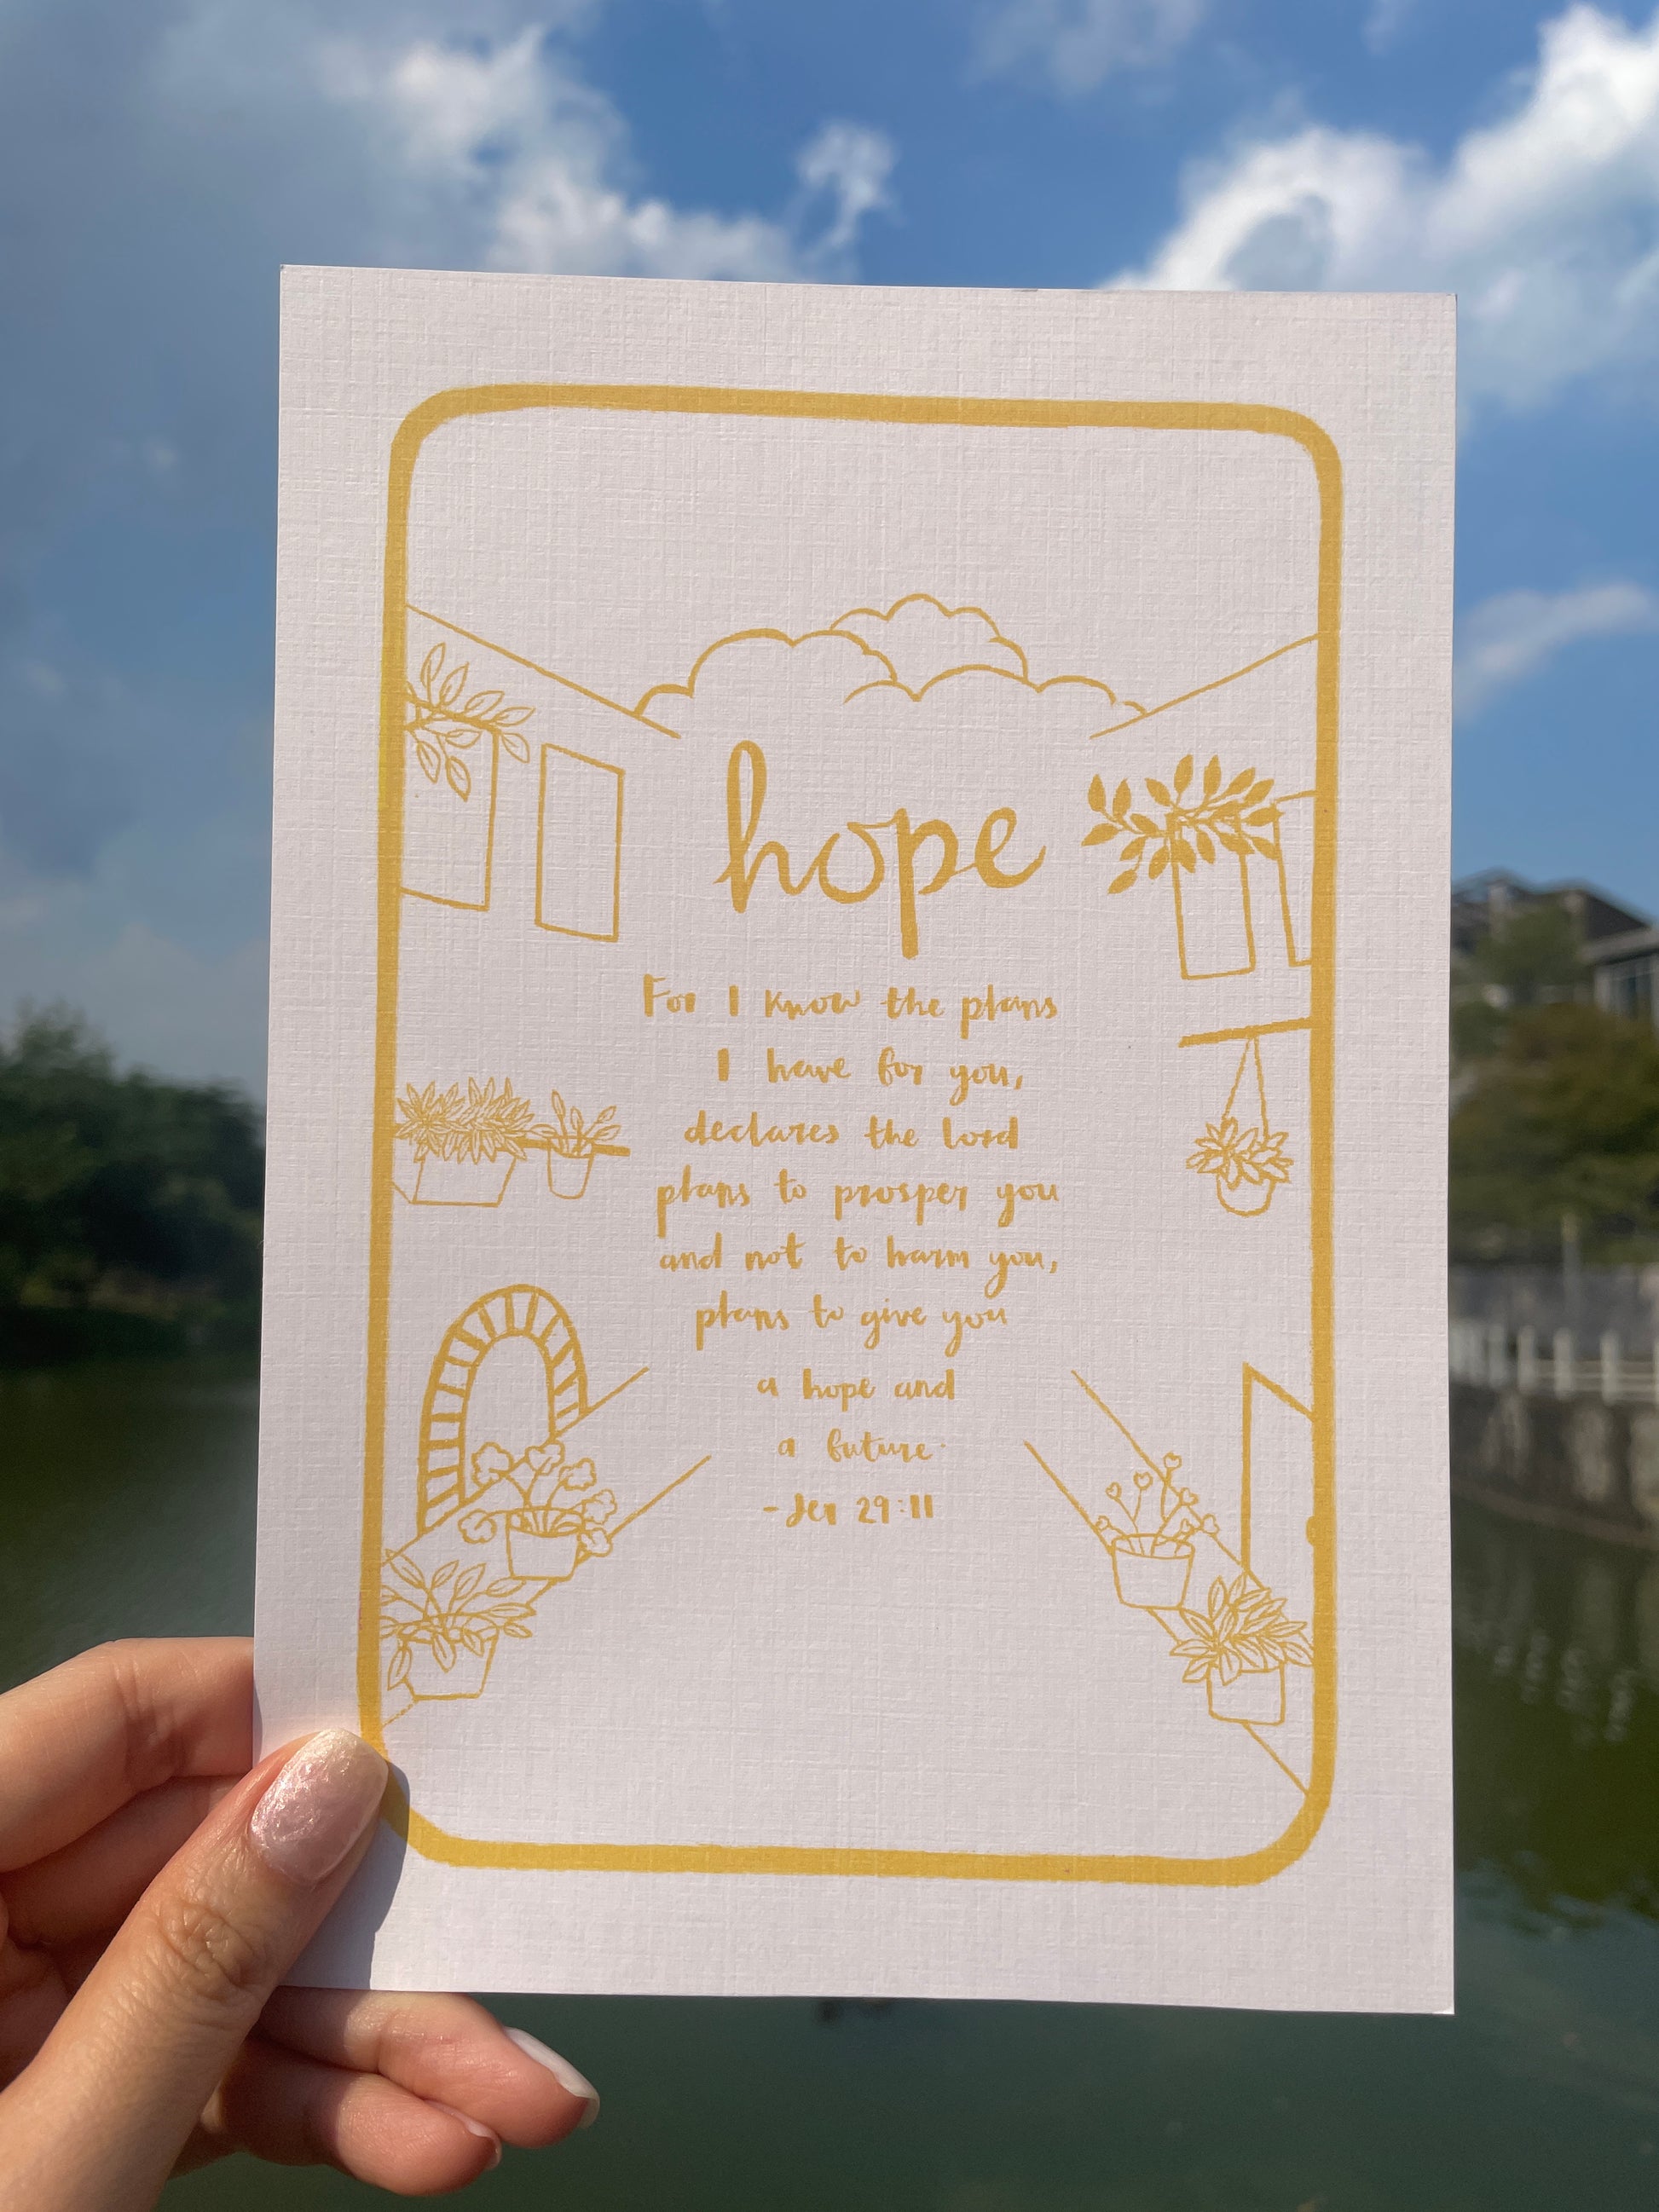 hope
For I know the plans
I have for you,
declares the lord
plans to prosper you
and not to harm you,
plans to give you
a hope and
a future.
-Jer 29:11